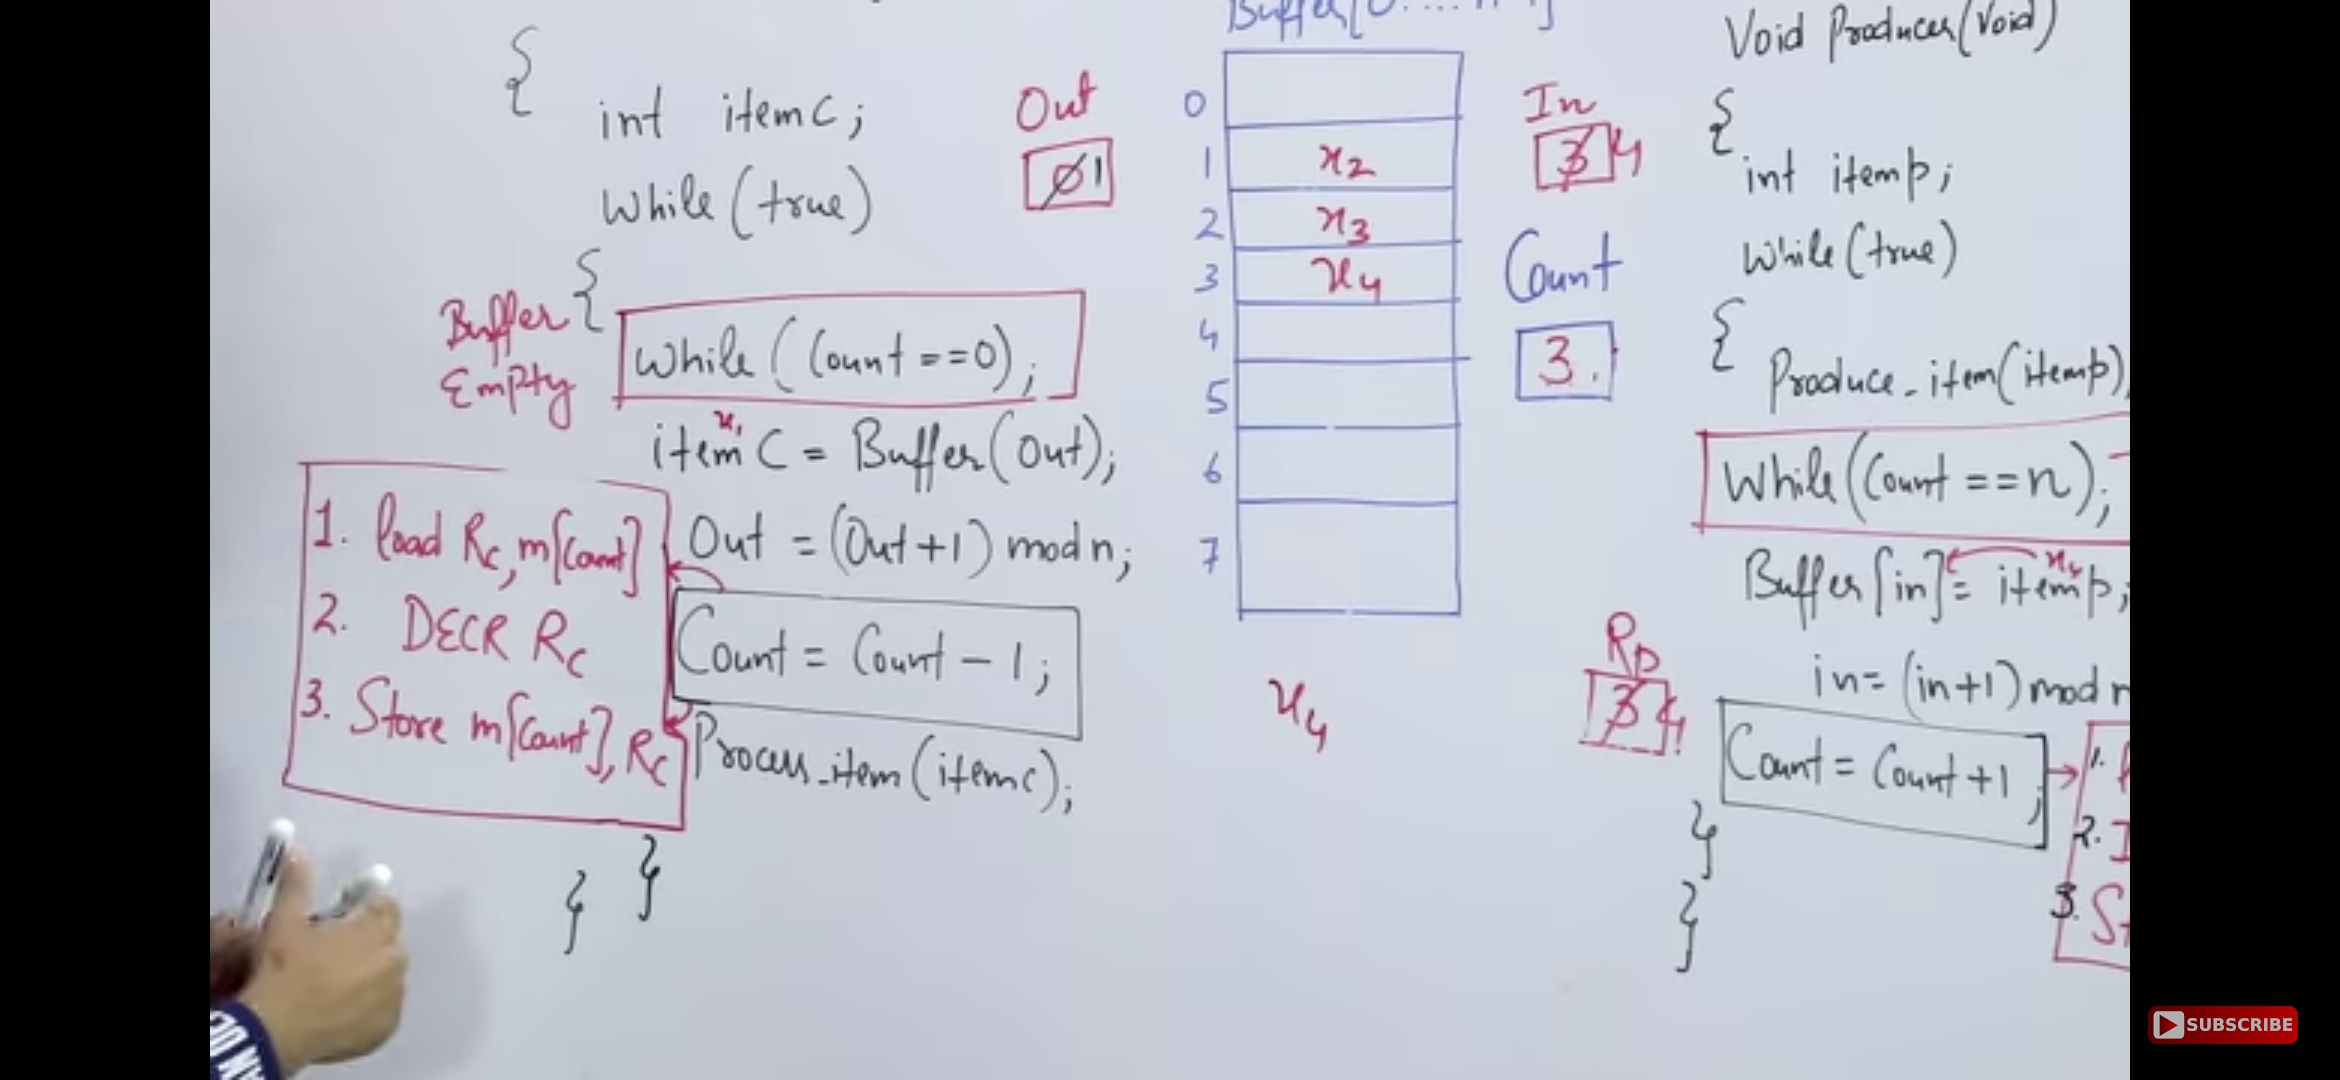 {
int itemc;
While(true)
{
Buffer
Empty
While(Count==0);
x1
itemC = Buffer(Out);
Out = (Out+1)mod n;
1. load Rc, m[Count]
2. DECR Rc
3. Store m[Count], Rc
Count = Count - 1;
Process_item(itemc);
}
}
Out
0 1
Buffer[0....
0
1 x2
2 x3
3 x4
4
5
6
7
x4
In
3 4
Count
3.
Rp
3 4
Void Producer(Void)
{
int itemp;
While(true)
{
Produce_item(itemp)
While(Count==n);
x4
Buffer[in]=itemp;
in=(in+1)mod n
Count = Count+1;
1.
2. I
3. St
}
}
SUBSCRIBE